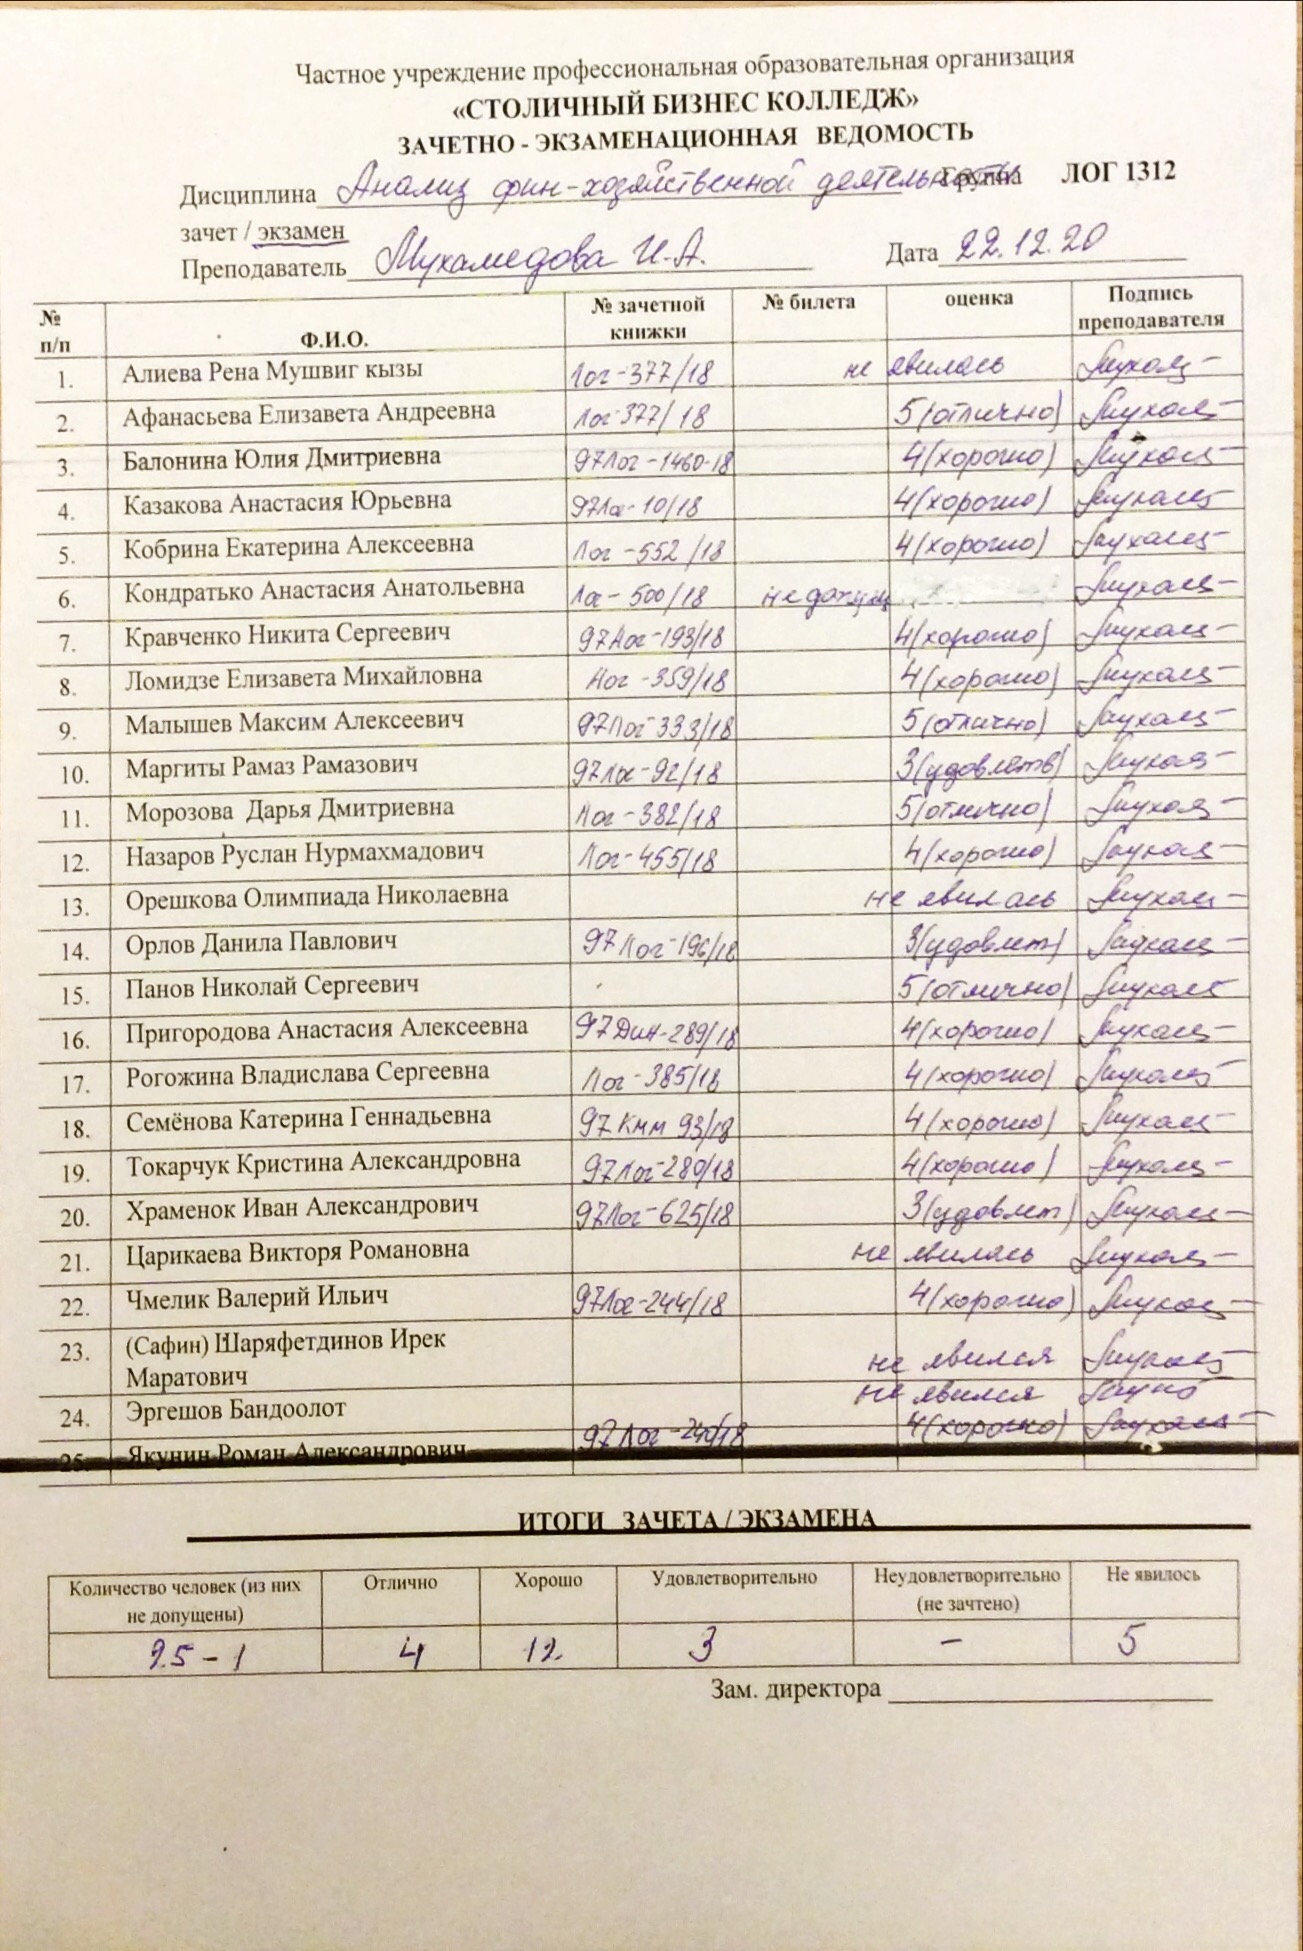 Частное учреждение профессиональная образовательная организация
«СТОЛИЧНЫЙ БИЗНЕС КОЛЛЕДЖ»
ЗАЧЕТНО - ЭКЗАМЕНАЦИОННАЯ ВЕДОМОСТЬ
Дисциплина Анализ фин-хозяйственной деятельности Группа ЛОГ 1312
зачет / экзамен
Преподаватель Мухамедова И.А. Дата 22.12.20
№ п/п Ф.И.О. № зачетной книжки № билета оценка Подпись преподавателя
1. Алиева Рена Мушвиг кызы Лог-377/18 не явилась
2. Афанасьева Елизавета Андреевна Лог 377/18 5(отлично)
3. Балонина Юлия Дмитриевна 97Лог-1460-18 4(хорошо)
4. Казакова Анастасия Юрьевна 97Лог-10/18 4(хорошо)
5. Кобрина Екатерина Алексеевна Лог-552/18 4(хорошо)
6. Кондратько Анастасия Анатольевна Лог-500/18 не допущ
7. Кравченко Никита Сергеевич 97Лог-193/18 4(хорошо)
8. Ломидзе Елизавета Михайловна Лог-359/18 4(хорошо)
9. Малышев Максим Алексеевич 97Лог-333/18 5(отлично)
10. Маргиты Рамаз Рамазович 97Лог-92/18 3(удовлетв)
11. Морозова Дарья Дмитриевна Лог-382/18 5(отлично)
12. Назаров Руслан Нурмахмадович Лог-455/18 4(хорошо)
13. Орешкова Олимпиада Николаевна не явилась
14. Орлов Данила Павлович 97Лог-196/18 3(удовлет)
15. Панов Николай Сергеевич 5(отлично)
16. Пригородова Анастасия Алексеевна 97Дин-289/18 4(хорошо)
17. Рогожина Владислава Сергеевна Лог-385/18 4(хорошо)
18. Семёнова Катерина Геннадьевна 97Кмм 93/18 4(хорошо)
19. Токарчук Кристина Александровна 97Лог-280/18 4(хорошо)
20. Храменок Иван Александрович 97Лог-625/18 3(удовлет)
21. Царикаева Викторя Романовна не явилась
22. Чмелик Валерий Ильич 97Лог-244/18 4(хорошо)
23. (Сафин) Шаряфетдинов Ирек
Маратович не явился
24. Эргешов Бандоолот не явился
25. Якунин Роман Александрович 97Лог-240/18 4(хорошо)
ИТОГИ ЗАЧЕТА / ЭКЗАМЕНА
Количество человек (из них не допущены) Отлично Хорошо Удовлетворительно Неудовлетворительно (не зачтено) Не явилось
25 - 1 4 12 3 - 5
Зам. директора